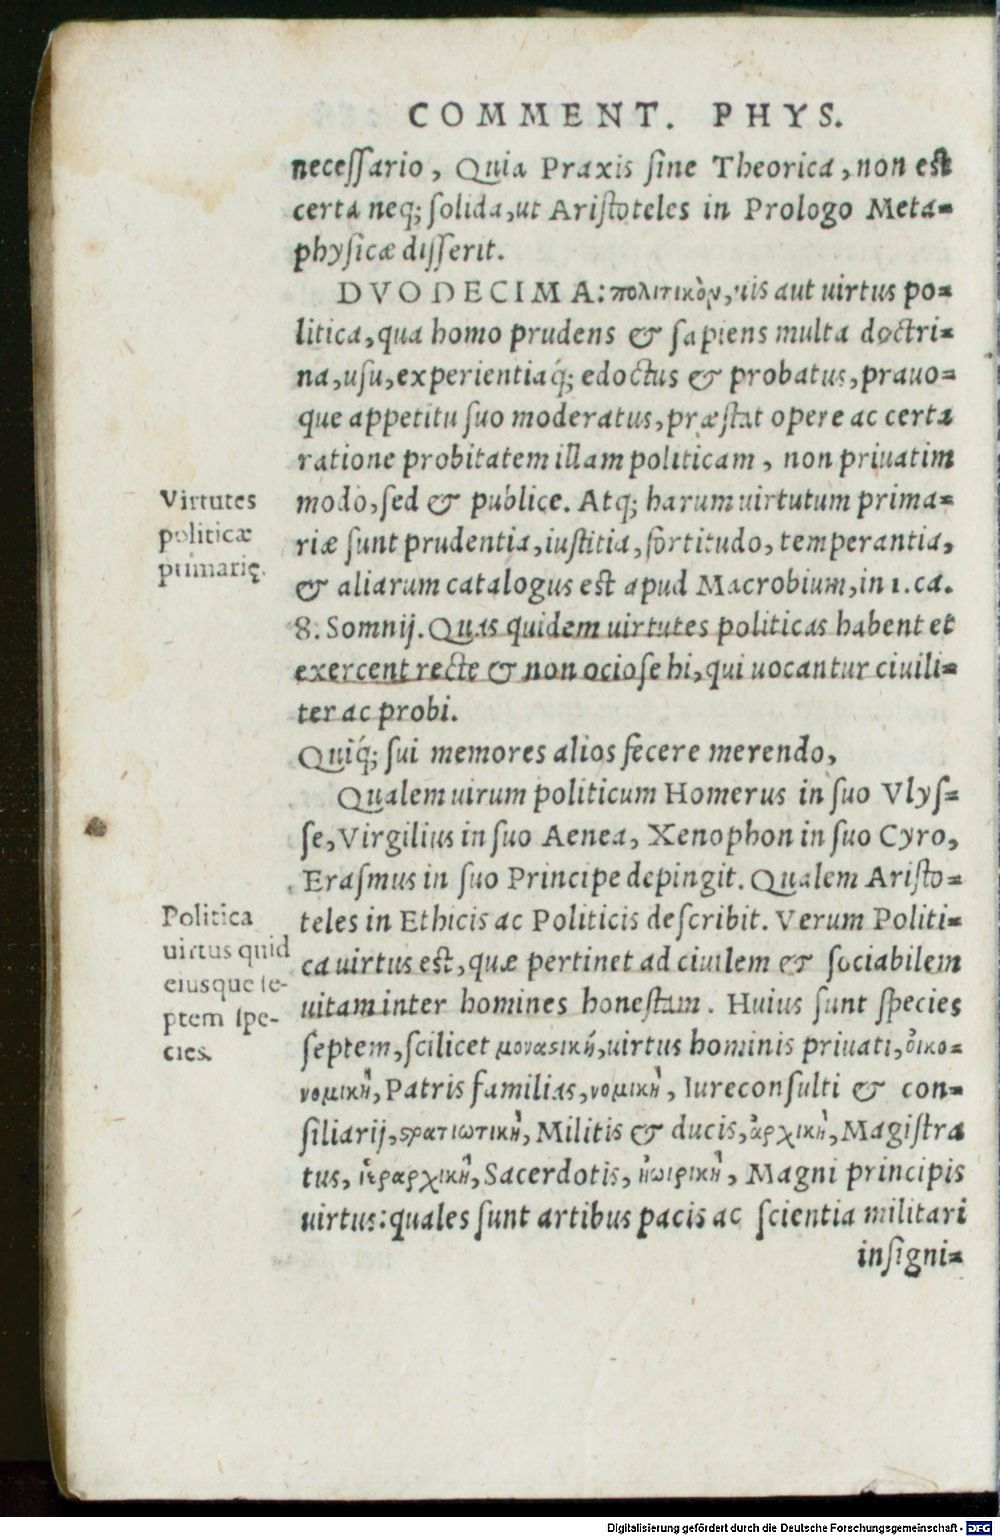 COMMENT. PHYS.
necessario, Quia Praxis sine Theorica, non est
certa neq; solida, ut Aristoteles in Prologo Meta=
physicæ disserit.
DVODECIMA: πολιτικὸν, uis aut uirtus po=
litica, qua homo prudens & sapiens multa doctri=
na, usu, experientiaq́; edoctus & probatus, prauo=
que appetitu suo moderatus, præstat opere ac certa
ratione probitatem illam politicam, non priuatim
modo, sed & publice. Atq; harum uirtutum prima=
riæ sunt prudentia, iustitia, fortitudo, temperantia,
& aliarum catalogus est apud Macrobium, in 1. ca.
8. Somnij. Quas quidem uirtutes politicas habent et
exercent recte & non ociose hi, qui uocantur ciuili=
ter ac probi.
Quiq́; sui memores alios fecere merendo,
Qualem uirum politicum Homerus in suo Vlys=
se, Virgilius in suo Aenea, Xenophon in suo Cyro,
Erasmus in suo Principe depingit. Qualem Aristo=
teles in Ethicis ac Politicis describit. Verum Politi=
ca uirtus est, quæ pertinet ad ciuilem & sociabilem
uitam inter homines honestam. Huius sunt species
septem, scilicet μοναϛικὴ, uirtus hominis priuati, οἰκο=
νομικὴ, Patris familias, νομικὴ, Iureconsulti & con=
siliarij, ϛρατιωτικὴ, Militis & ducis, ἀρχικὴ, Magistra
tus, ἱεραρχικὴ, Sacerdotis, ἡωιρικὴ, Magni principis
uirtus: quales sunt artibus pacis ac scientia militari
insigni=
Virtutes
politicæ
primarię.
Politica
uirtus quid
eiusque se-
ptem spe-
cies.
Digitalisierung gefördert durch die Deutsche Forschungsgemeinschaft - DFG